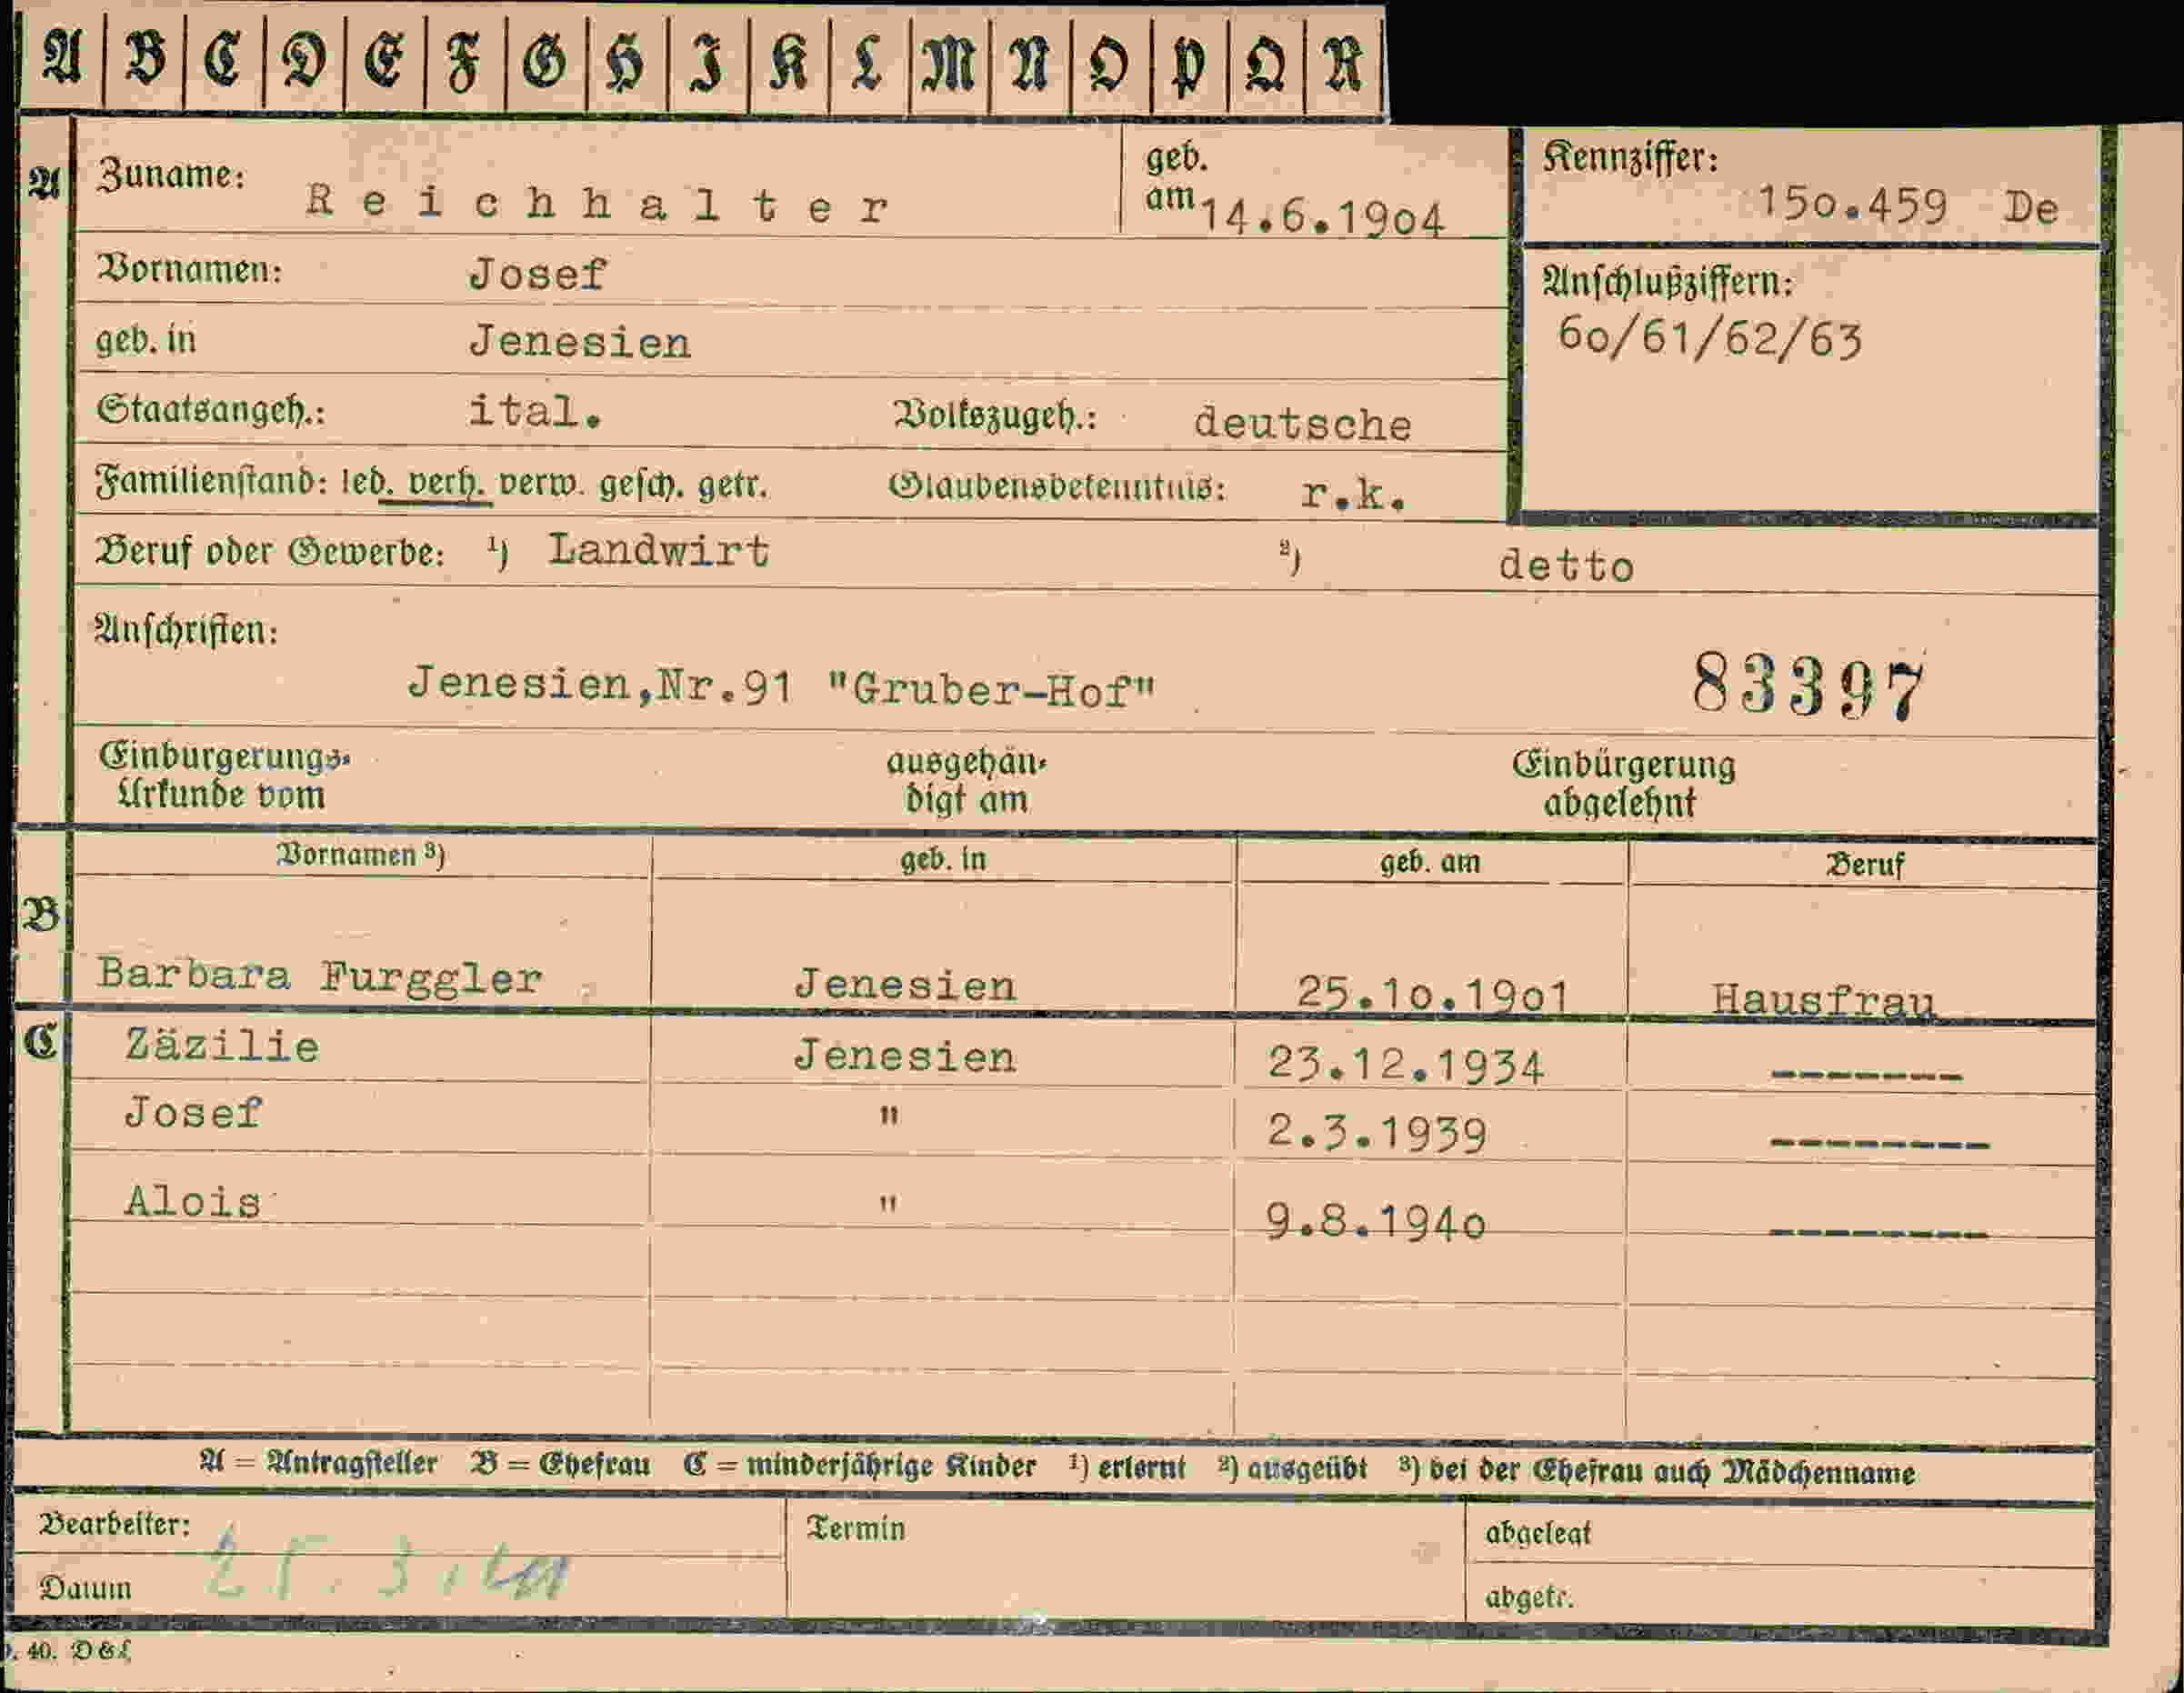 A B C D E F G H I K L M N O P Q R
A Zuname: Reichhalter geb. am 14.6.1904 Kennziffer: 150.459 De
Vornamen: Josef Anschlußziffern:
geb. in Jenesien 60/61/62/63
Staatsangeh.: ital. Volkszugeh.: deutsche
Familienstand: led. verh. verw. gesch. getr. Glaubensbekenntnis: r.k.
Beruf oder Gewerbe: ¹) Landwirt ²) detto
Anschriften:
Jenesien,Nr.91 "Gruber-Hof" 83397
Einbürgerungs- ausgehän- Einbürgerung
Urkunde vom digt am abgelehnt
Vornamen ³) geb. in geb. am Beruf
B
Barbara Furggler Jenesien 25.10.1901 Hausfrau
C Zäzilie Jenesien 23.12.1934 -------
Josef " 2.3.1939 --------
Alois " 9.8.1940 --------
A = Antragsteller B = Ehefrau C = minderjährige Kinder ¹) erlernt ²) ausgeübt ³) bei der Ehefrau auch Mädchenname
Bearbeiter: Termin abgelegt
Datum 25.3. abgetr.
40. D&L